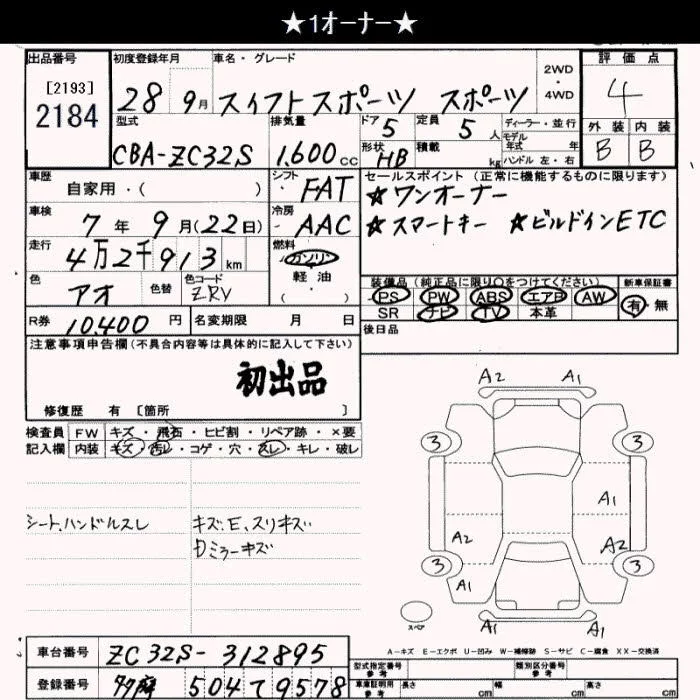 ★1オーナー★
出品番号 初度登録年月 車名・グレード 2WD・4WD 評価点
[2193]
2184 28 9月 スイフトスポーツ スポーツ 4
型式 排気量 ドア 5 定員 5人 ディーラー・並行 外装 内装
モデル年式 年
CBA-ZC32S 1.600cc 形状 HB 積載 kg ハンドル 左・右 B B
車歴 シフト セールスポイント(正常に機能するものに限ります)
自家用・( ) FAT ☆ワンオーナー
車検 冷房
7年9月(22日) AAC ☆スマートキー ☆ビルドインETC
走行 燃料
4万2千913km ガソリン
軽油
色 色替 色コード ・( ) 装備品(純正品に限り〇をつけてください) 新車保証書
アオ ZRV PS PW ABS エアB AW 有・無
SR ナビ TV 本革
R券 10.400円 名変期限 月 日 後日品
注意事項申告欄(不具合内容等は具体的に記入して下さい)
初出品
修復歴 有 [箇所 ]
検査員 FW キズ・飛石・ヒビ割・リペア跡・×要
記入欄 内装 キズ・汚レ・コゲ・穴・スレ・キレ・破レ
シート、ハンドルスレ キズ、E、スリキズ
ミラーキズ
A2 A1
3 3
A1
A2 A2
3 3
A1
スペア A1 A1
A-キズ E-エクボ U-凹み W-補修跡 S-サビ C-腐食 XX-交換済
車台番号 ZC32S-312895 型式指定番号 参考 類別区分番号 参考
登録番号 504 て 9578 車庫証明用 参考 長さ cm 幅 cm 高さ cm